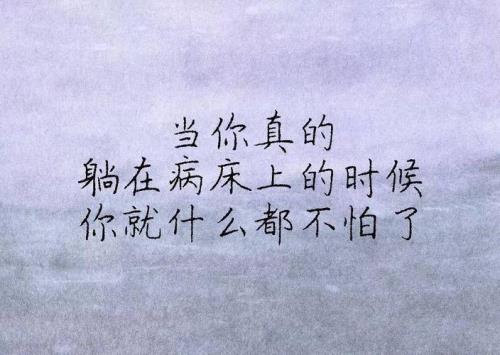 当你真的
躺在病床上的时候
你就什么都不怕了